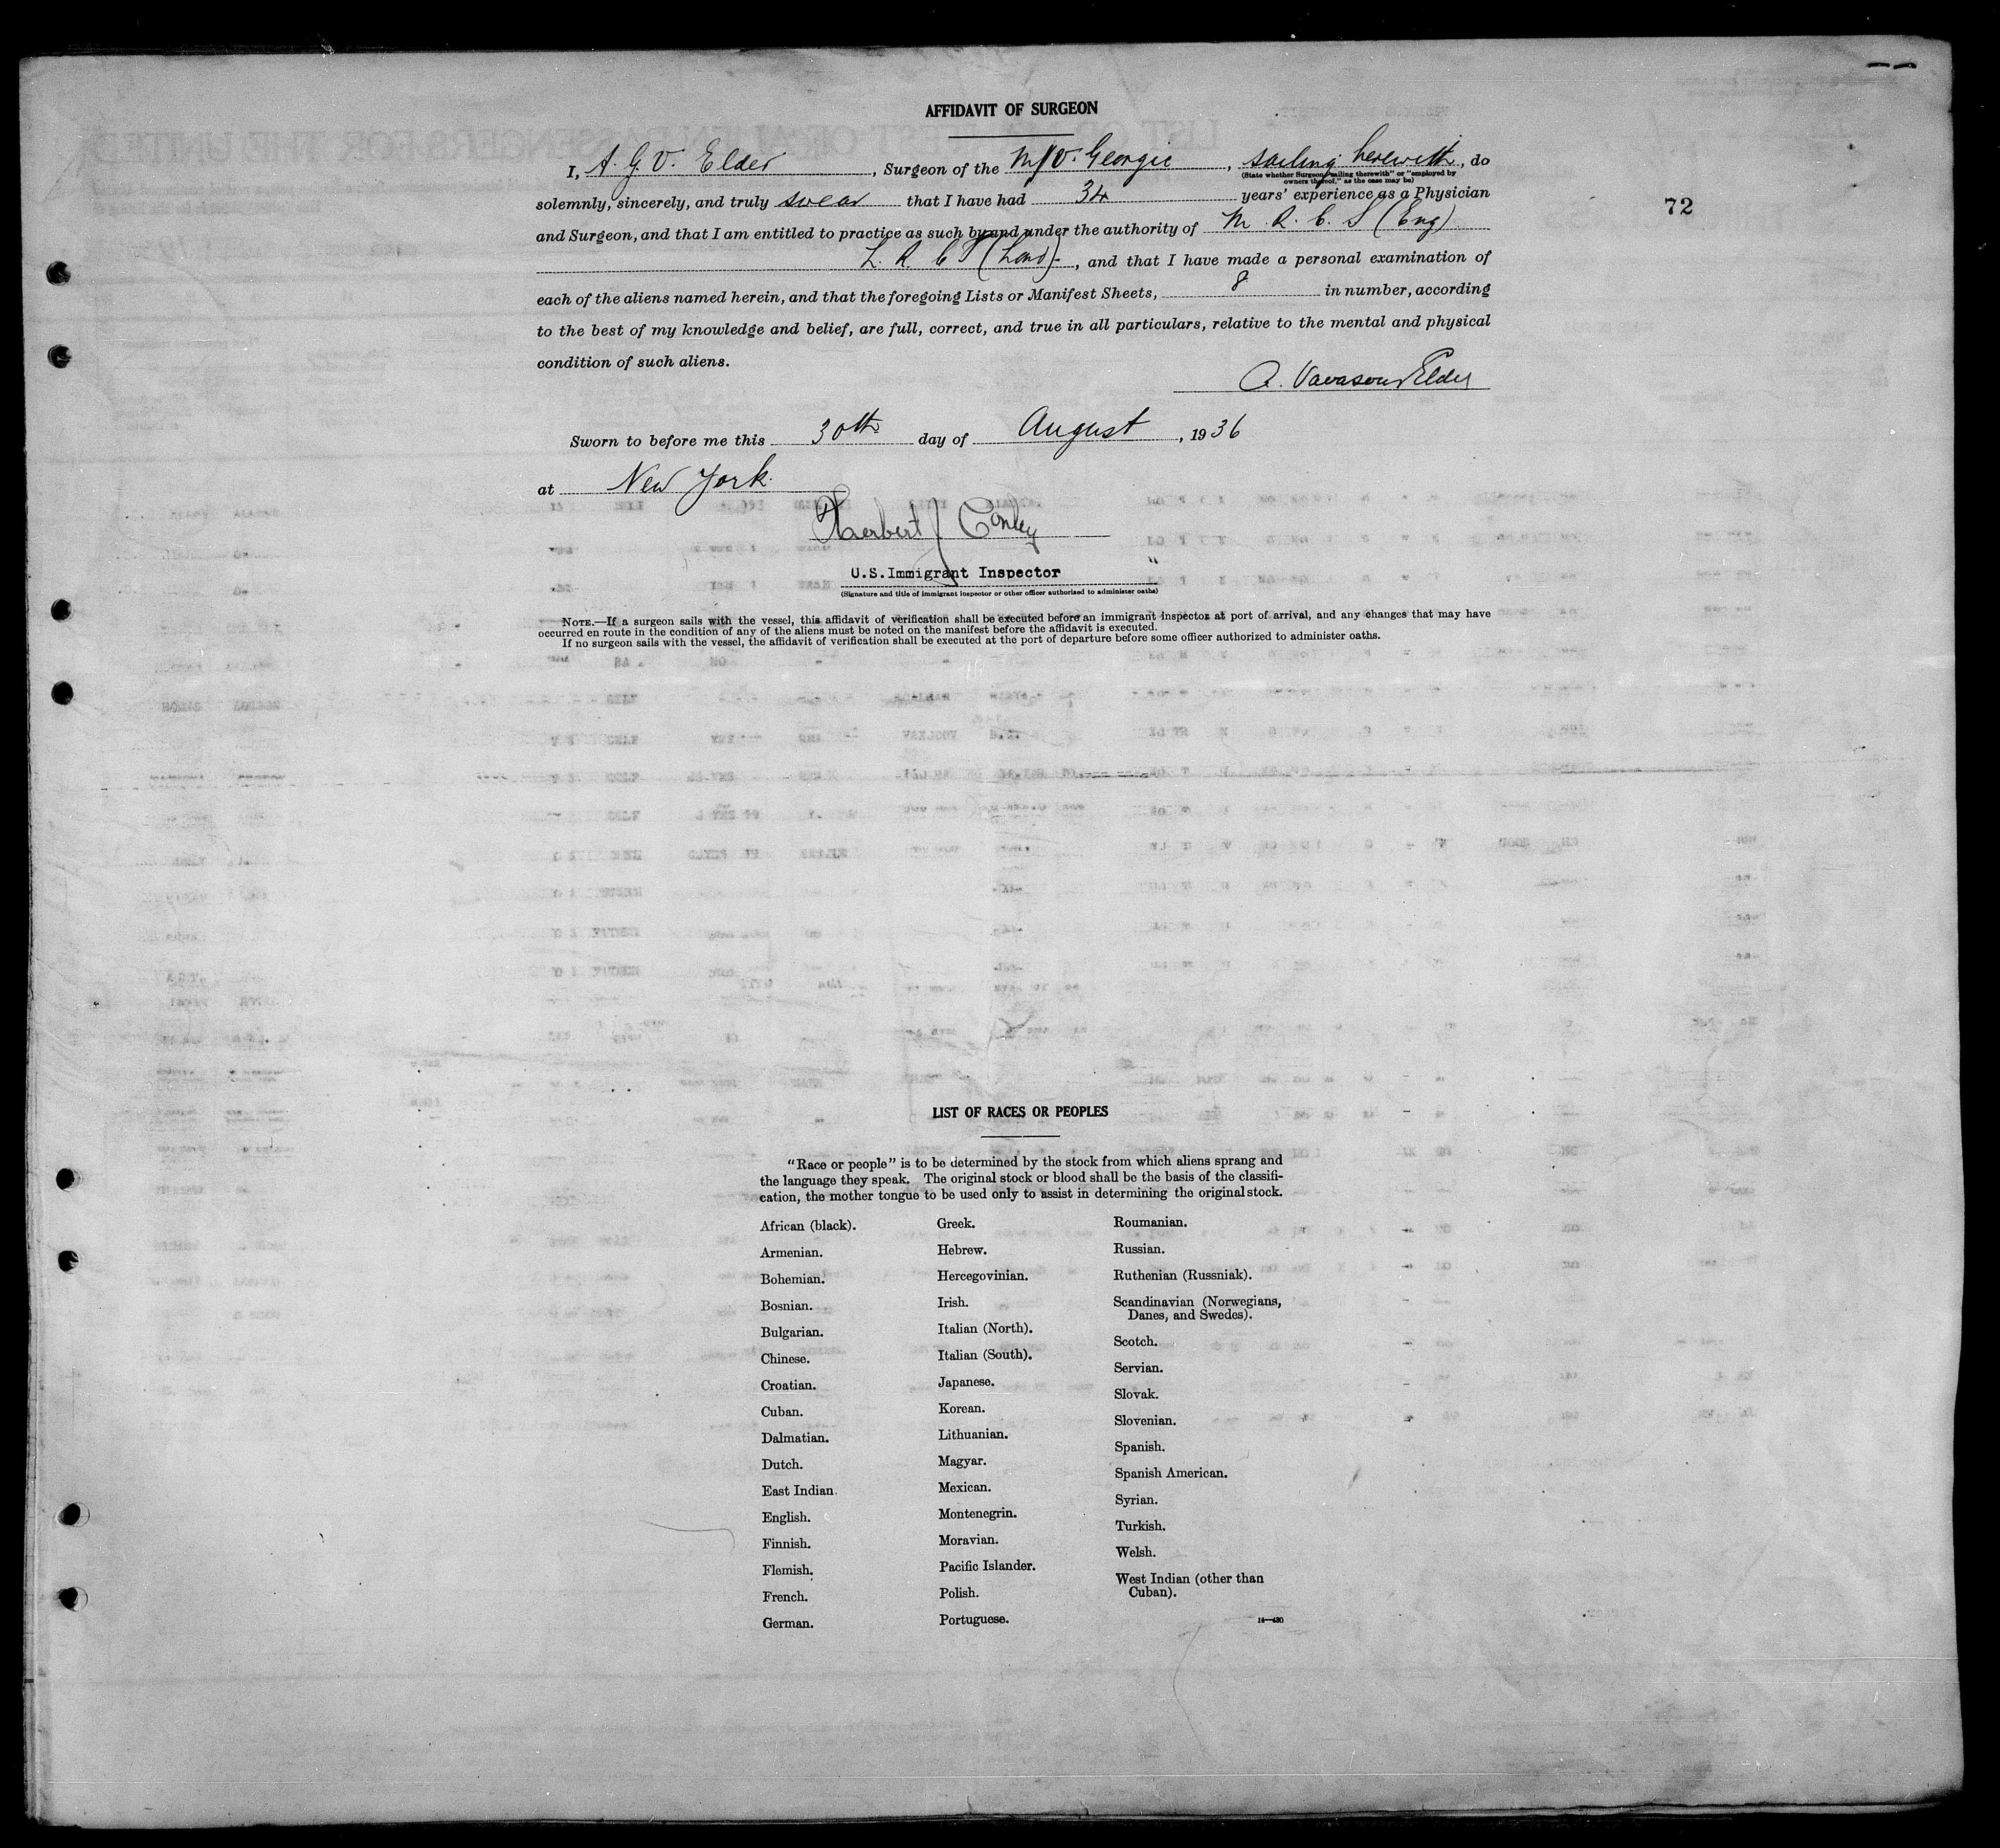 AFFIDAVIT OF SURGEON
I, A. G. V. Elder, Surgeon of the M/V. Georgic, sailing herewith, do
(State whether Surgeon "sailing therewith" or "employed by
owners thereof," as the case may be)
solemnly, sincerely, and truly swear that I have had 34 years' experience as a Physician
72
and Surgeon, and that I am entitled to practice as such by and under the authority of M. R. C. S (Eng)
L. R. C P (Lond)., and that I have made a personal examination of
each of the aliens named herein, and that the foregoing Lists or Manifest Sheets, 8 in number, according
to the best of my knowledge and belief, are full, correct, and true in all particulars, relative to the mental and physical
condition of such aliens.
A. Vavasour Elder
Sworn to before me this 30th day of August, 1936
at New York.
Herbert J Conley
U.S. Immigrant Inspector
(Signature and title of immigrant inspector or other officer authorized to administer oaths)
NOTE.—If a surgeon sails with the vessel, this affidavit of verification shall be executed before an immigrant inspector at port of arrival, and any changes that may have
occurred en route in the condition of any of the aliens must be noted on the manifest before the affidavit is executed.
If no surgeon sails with the vessel, the affidavit of verification shall be executed at the port of departure before some officer authorized to administer oaths.
LIST OF RACES OR PEOPLES
"Race or people" is to be determined by the stock from which aliens sprang and
the language they speak. The original stock or blood shall be the basis of the classifi-
cation, the mother tongue to be used only to assist in determining the original stock.
African (black).
Armenian.
Bohemian.
Bosnian.
Bulgarian.
Chinese.
Croatian.
Cuban.
Dalmatian.
Dutch.
East Indian.
English.
Finnish.
Flemish.
French.
German.
Greek.
Hebrew.
Hercegovinian.
Irish.
Italian (North).
Italian (South).
Japanese.
Korean.
Lithuanian.
Magyar.
Mexican.
Montenegrin.
Moravian.
Pacific Islander.
Polish.
Portuguese.
Roumanian.
Russian.
Ruthenian (Russniak).
Scandinavian (Norwegians,
Danes, and Swedes).
Scotch.
Servian.
Slovak.
Slovenian.
Spanish.
Spanish American.
Syrian.
Turkish.
Welsh.
West Indian (other than
Cuban).
14—430